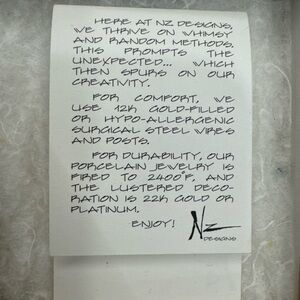 HERE AT NZ DESIGNS,
WE THRIVE ON WHIMSY
AND RANDOM METHODS.
THIS PROMPTS THE
UNEXPECTED... WHICH
THEN SPURS ON OUR
CREATIVITY.
FOR COMFORT, WE
USE 12K GOLD-FILLED
OR HYPO-ALLERGENIC
SURGICAL STEEL WIRES
AND POSTS.
FOR DURABILITY, OUR
PORCELAIN JEWELRY IS
FIRED TO 2400°F, AND
THE LUSTERED DECO-
RATION IS 22K GOLD OR
PLATINUM.
ENJOY! NZ
DESIGNS